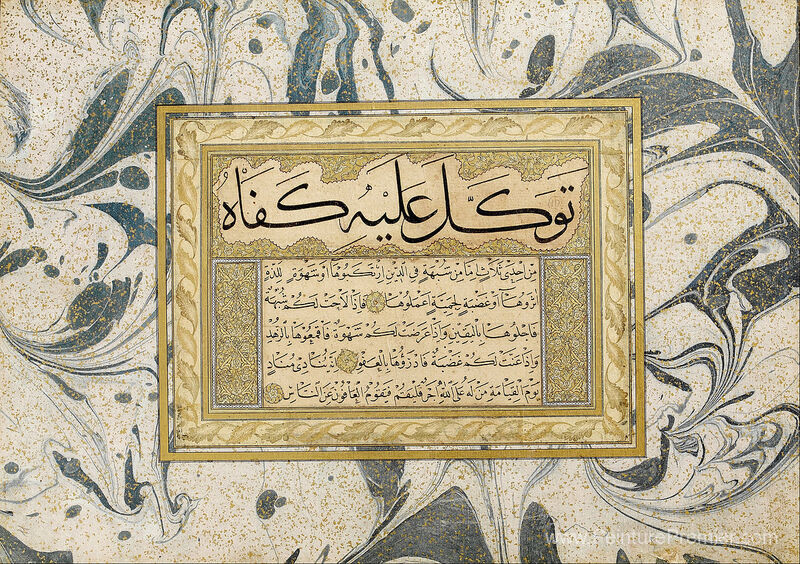 توكل عليه كفاه
من احدى ثلاث اما من شبهة في الدين ارتكبوها او شهوة للذة
اثروها او غضبة لحمية اعملوها فاذا لاحت لكم شبهة
فاجلوها باليقين واذا عرضت لكم شهوة فاقمعوها بالزهد
واذا عنت لكم غضبة فادرؤها بالعفو ينادي مناد
يوم القيامة من له على الله اجر فليقم فيقوم العافون عن الناس
www.PeinturePremier.com